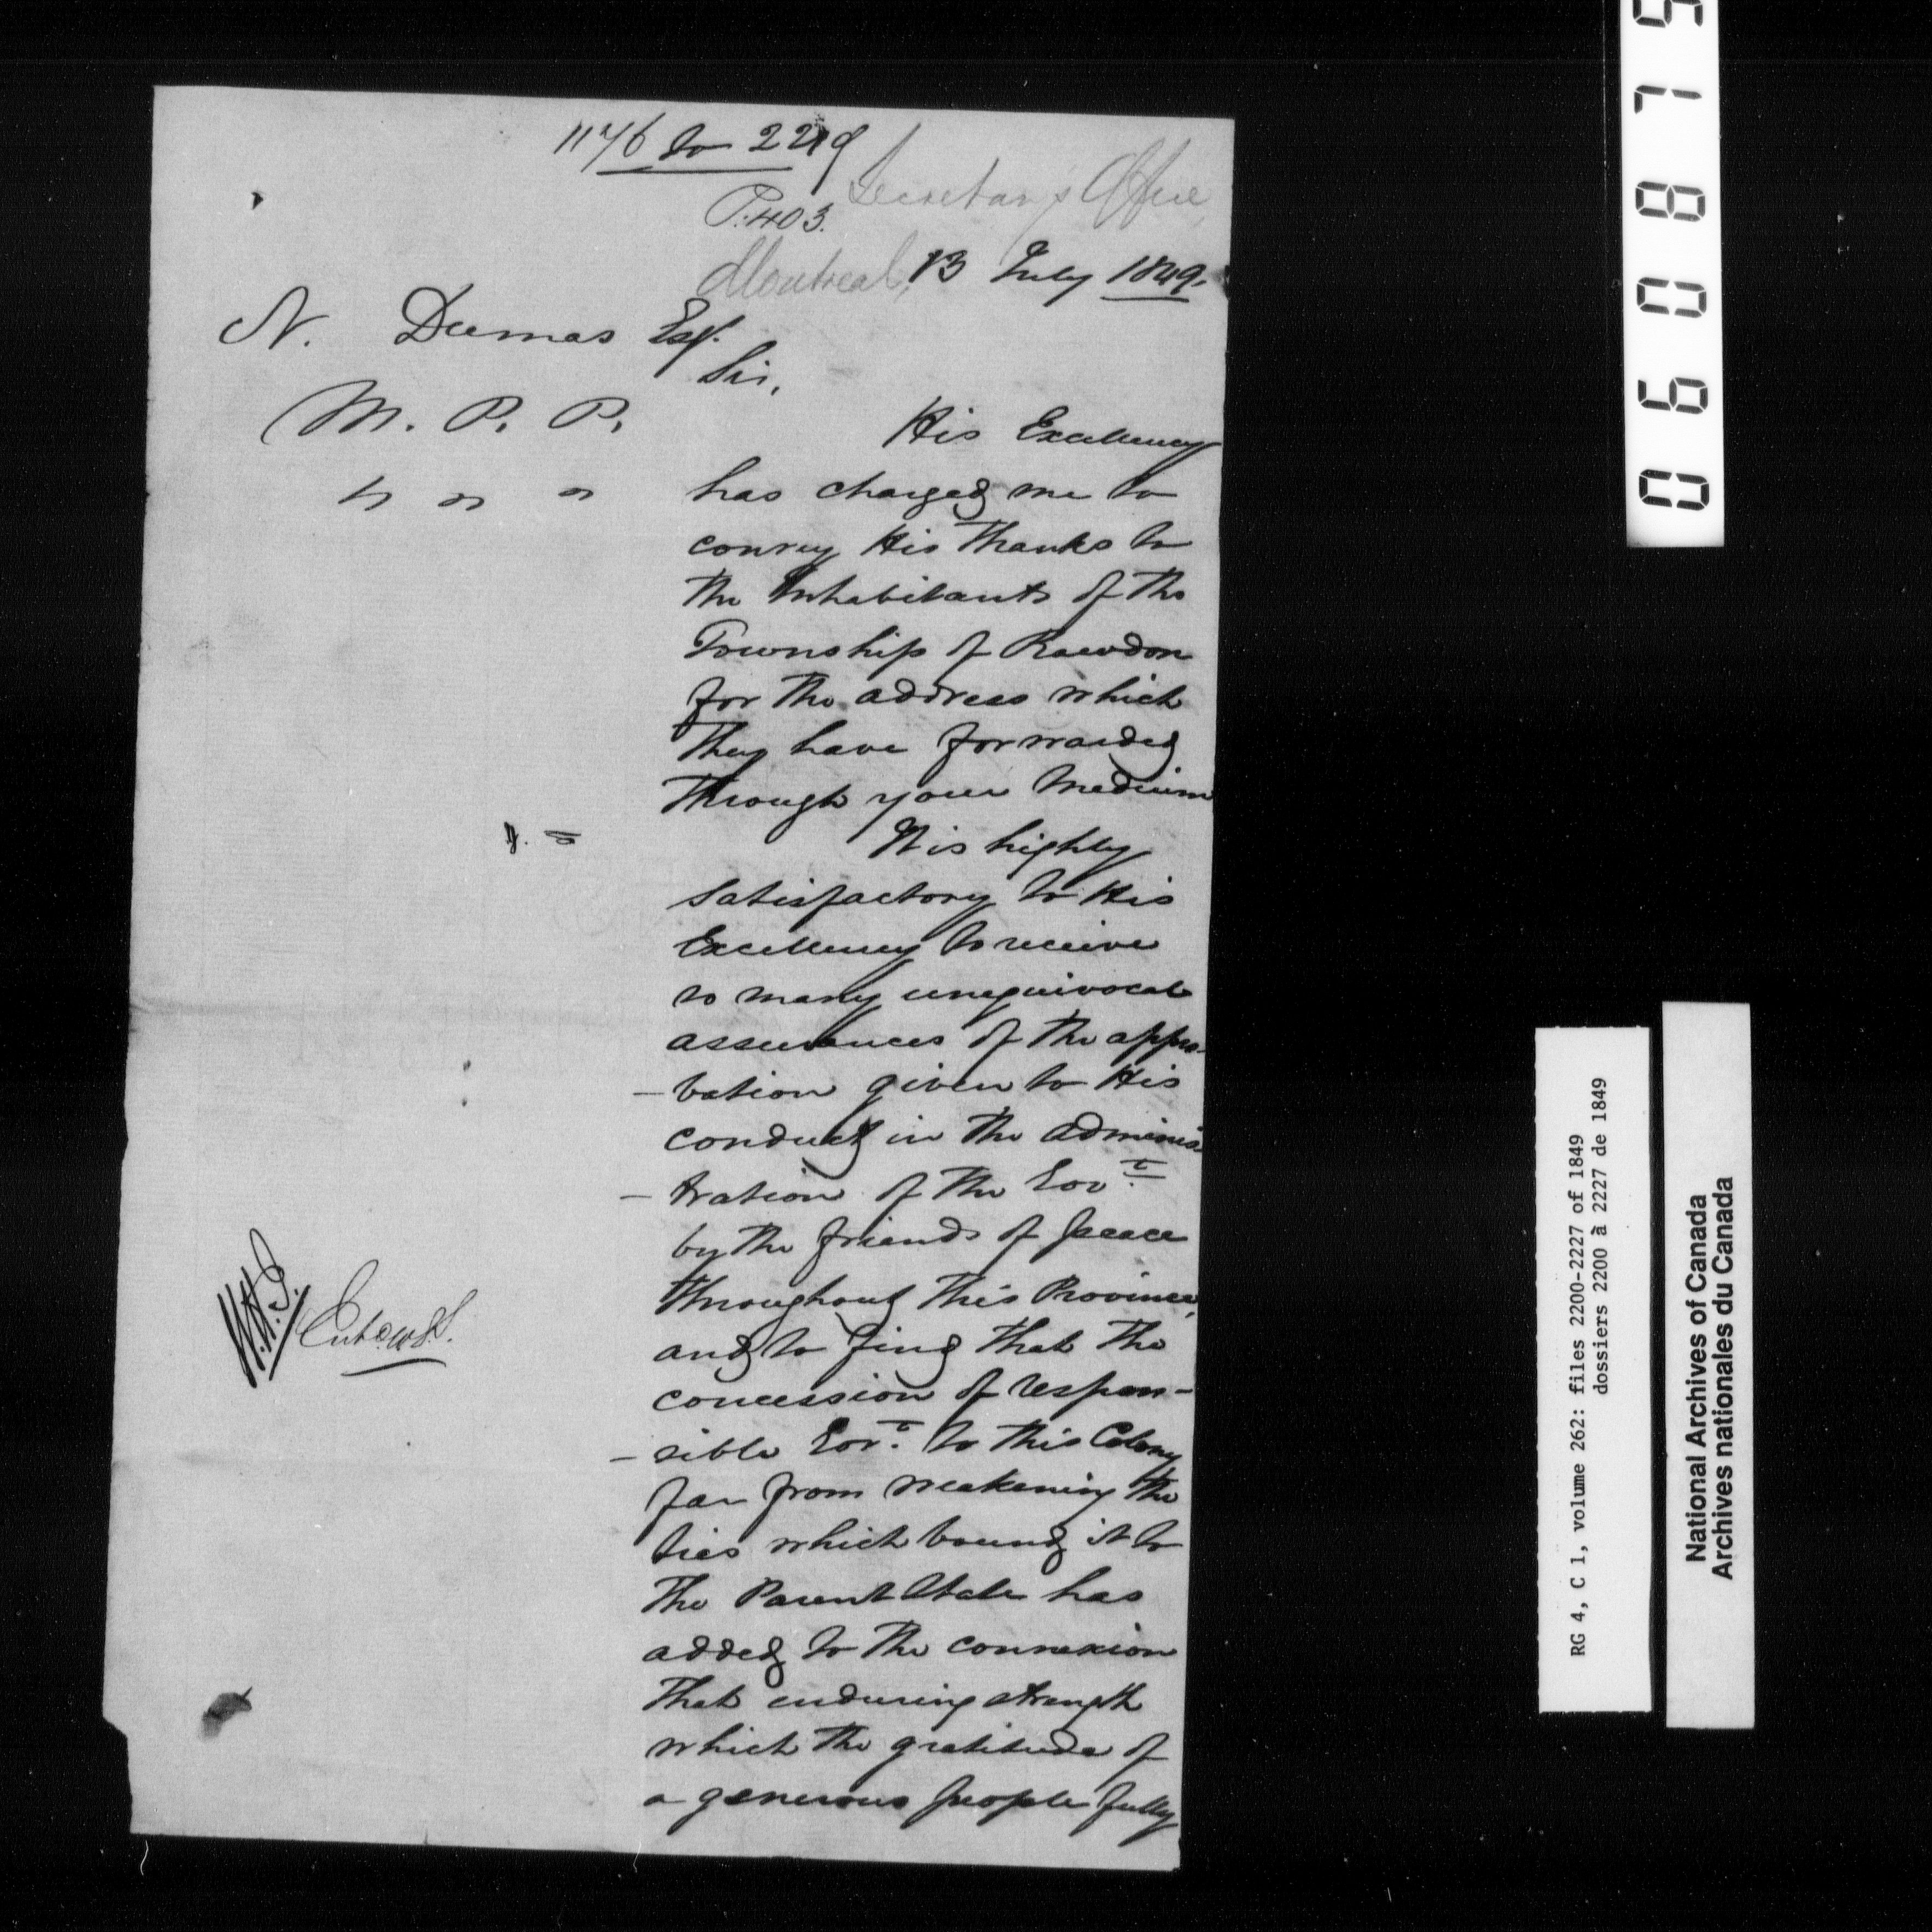 1176 to 2219
P. 403.
Secretary's Office
Montreal, 13 July 1849.
N. Dumas Esq.
M. P. P.
" " "
Sir,
His Excellency
has charged me to
convey His Thanks to
the Inhabitants of the
Township of Rawdon
for the address which
they have forwarded
through your Medium
It is highly
satisfactory to His
Excellency to receive
so many unequivocal
assurances of the appro-
- bation given to His
conduct in the adminis
- tration of the Govt.
by the friends of peace
throughout this Province,
and to find that the
concession of respon-
- sible Govt. to this Colony
far from weakening the
ties which bound it to
the Parent State has
added to the connexion
that enduring strength
which the gratitude of
a generous people fully
060875
RG 4, C 1, volume 262: files 2200-2227 of 1849
dossiers 2200 à 2227 de 1849
National Archives of Canada
Archives nationales du Canada